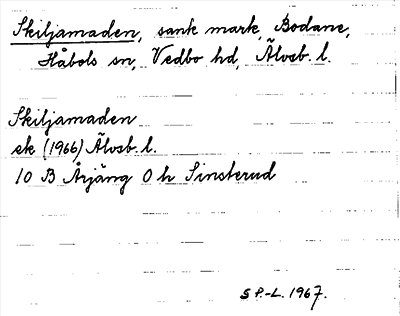 Skiljamaden, sank mark, Bodane,
Håbols sn, Vedbo hd, Älvsb. l.
Skiljamaden
ek (1966) Älvsb. l.
10 B Årjäng 0 h Sinsterud
S P.-L. 1967.